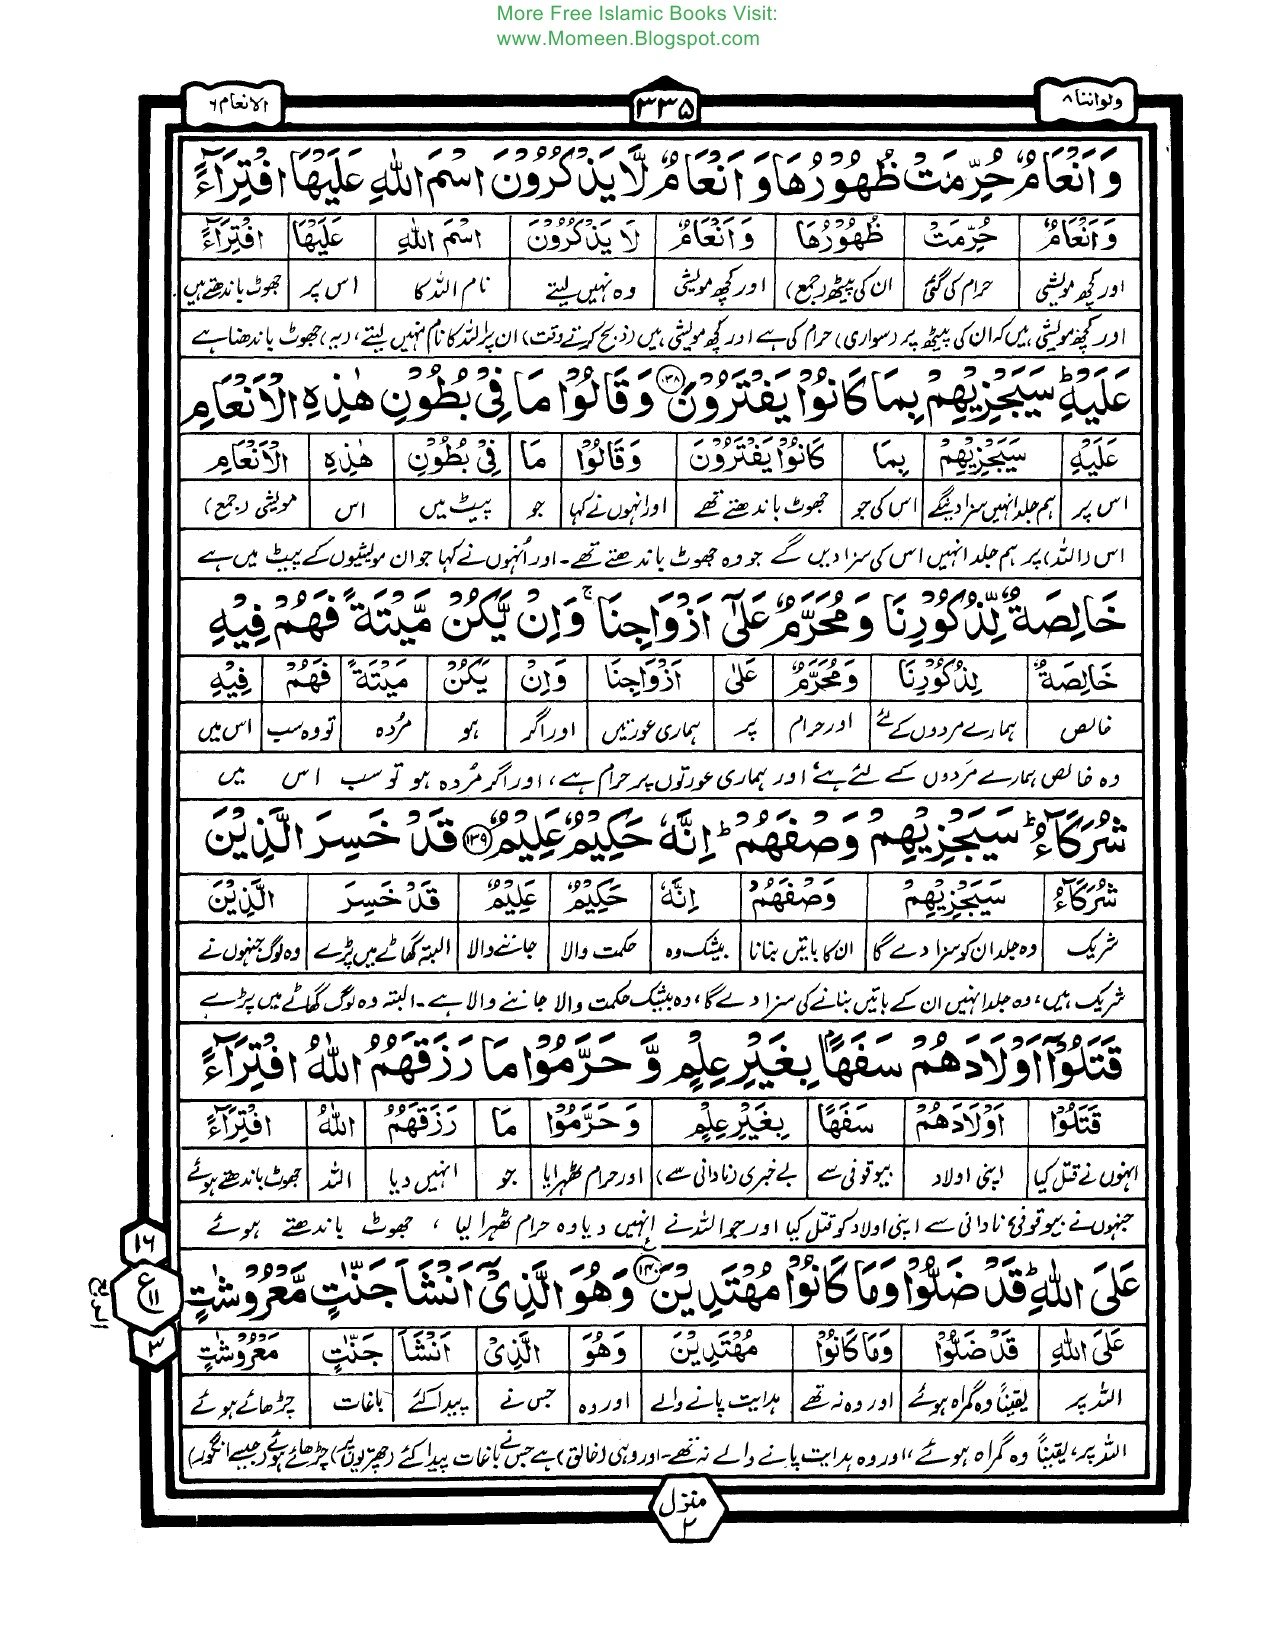 More Free Islamic Books Visit:
www.Momeen.Blogspot.com
ولواننا ۸
۳۳۵
الانعام ۶
وَاَنْعَامٌ حُرِّمَتْ ظُهُوْرُهَا وَ اَنْعَامٌ لَّا يَذْكُرُوْنَ اسْمَ اللّٰهِ عَلَيْهَا افْتِرَآءً
وَاَنْعَامٌ حُرِّمَتْ ظُهُوْرُهَا وَاَنْعَامٌ لَا يَذْكُرُوْنَ اسْمَ اللّٰهِ عَلَيْهَا افْتِرَآءً
اور کچھ مویشی حرام کی گئی ان کی پیٹھ (جمع) اور کچھ مویشی وہ نہیں لیتے نام اللہ کا اس پر جھوٹ باندھتے ہیں
اور کچھ مویشی ہیں کہ ان کی پیٹھ پر (سواری) حرام کی ہے اور کچھ مویشی ہیں (ذبح کرتے وقت) ان پر اللہ کا نام نہیں لیتے، (یہ) جھوٹ باندھنا ہے
عَلَيْهِ ؕ سَيَجْزِيْهِمْ بِمَا كَانُوْا يَفْتَرُوْنَ ۱۳۸ وَقَالُوْا مَا فِيْ بُطُوْنِ هٰذِهِ الْاَنْعَامِ
عَلَيْهِ سَيَجْزِيْهِمْ بِمَا كَانُوْا يَفْتَرُوْنَ وَقَالُوْا مَا فِيْ بُطُوْنِ هٰذِهِ الْاَنْعَامِ
اس پر ہم جلد انہیں سزا دینگے اس کی جو جھوٹ باندھتے تھے اور انہوں نے کہا جو پیٹ میں اس مویشی (جمع)
اس (اللہ) پر ہم جلد انہیں اس کی سزا دیں گے جو وہ جھوٹ باندھتے تھے۔ اور اُنہوں نے کہا جو ان مویشیوں کے پیٹ میں ہے
خَالِصَةٌ لِّذُكُوْرِنَا وَمُحَرَّمٌ عَلٰٓى اَزْوَاجِنَا ۚ وَاِنْ يَّكُنْ مَّيْتَةً فَهُمْ فِيْهِ
خَالِصَةٌ لِذُكُوْرِنَا وَمُحَرَّمٌ عَلٰى اَزْوَاجِنَا وَاِنْ يَكُنْ مَيْتَةً فَهُمْ فِيْهِ
خالص ہمارے مردوں کے لئے اور حرام پر ہماری عورتیں اور اگر ہو مُردہ تو وہ سب اس میں
وہ خالص ہمارے مَردوں کے لئے ہے اور ہماری عورتوں پر حرام ہے، اور اگر مُردہ ہو تو سب اس میں
شُرَكَآءُ ؕ سَيَجْزِيْهِمْ وَصْفَهُمْ ؕ اِنَّهٗ حَكِيْمٌ عَلِيْمٌ ۱۳۹ قَدْ خَسِرَ الَّذِيْنَ
شُرَكَآءُ سَيَجْزِيْهِمْ وَصْفَهُمْ اِنَّهٗ حَكِيْمٌ عَلِيْمٌ قَدْ خَسِرَ الَّذِيْنَ
شریک وہ جلد ان کو سزا دے گا ان کا باتیں بنانا بیشک وہ حکمت والا جاننے والا البتہ گھاٹے میں پڑے وہ لوگ جنہوں نے
شریک ہیں، وہ جلد انہیں ان کے باتیں بنانے کی سزا دے گا، وہ بیشک حکمت والا جاننے والا ہے۔ البتہ وہ لوگ گھاٹے میں پڑے
قَتَلُوْٓا اَوْلَادَهُمْ سَفَهًۢا بِغَيْرِ عِلْمٍ وَّ حَرَّمُوْا مَا رَزَقَهُمُ اللّٰهُ افْتِرَآءً
قَتَلُوْٓا اَوْلَادَهُمْ سَفَهًا بِغَيْرِ عِلْمٍ وَحَرَّمُوْا مَا رَزَقَهُمُ اللّٰهُ افْتِرَآءً
انہوں نے قتل کیا اپنی اولاد بیوقوفی سے بے خبری (نادانی سے) اور حرام ٹھہرایا جو انہیں دیا اللہ جھوٹ باندھتے ہوئے
جنہوں نے بیوقوفی، نادانی سے اپنی اولاد کو قتل کیا اور جو اللہ نے انہیں دیا وہ حرام ٹھہرا لیا ، جھوٹ باندھتے ہوئے
عَلَى اللّٰهِ ؕ قَدْ ضَلُّوْا وَمَا كَانُوْا مُهْتَدِيْنَ ۱۴۰ وَهُوَ الَّذِيْٓ اَنْشَاَ جَنّٰتٍ مَّعْرُوْشٰتٍ
عَلَى اللّٰهِ قَدْ ضَلُّوْا وَمَا كَانُوْا مُهْتَدِيْنَ وَهُوَ الَّذِيْٓ اَنْشَاَ جَنّٰتٍ مَعْرُوْشٰتٍ
اللہ پر یقیناً وہ گمراہ ہوئے اور وہ نہ تھے ہدایت پانے والے اور وہ جس نے پیدا کئے باغات چڑھائے ہوئے
اللہ پر، یقیناً وہ گمراہ ہوئے، اور وہ ہدایت پانے والے نہ تھے۔ اور وہی (خالق) ہے جس نے باغات پیدا کئے (چھتریوں پر) چڑھائے ہوئے (جیسے انگور)
۱۶
ع ۱۱
۳
منزل ۲